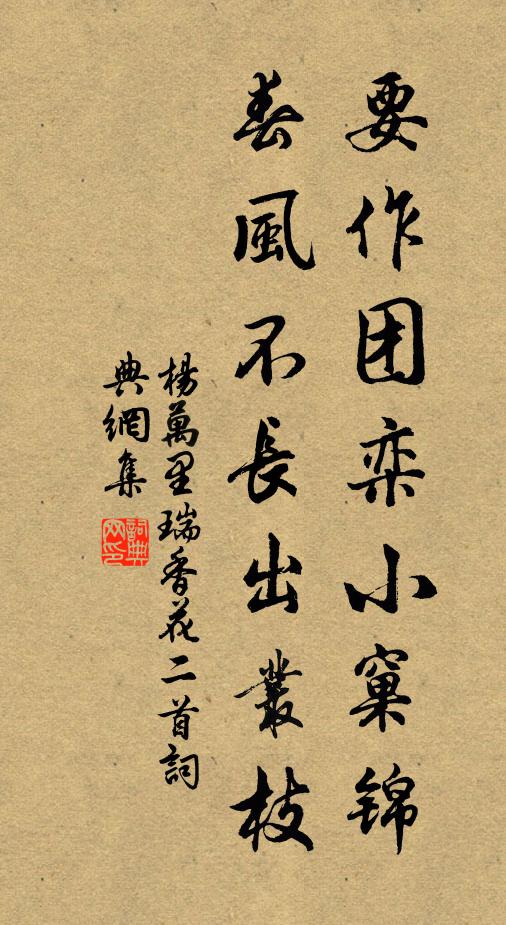 要作团栾小窠锦
春風不長出叢枝
楊萬里瑞香花二首詞
典網集
詞典網印